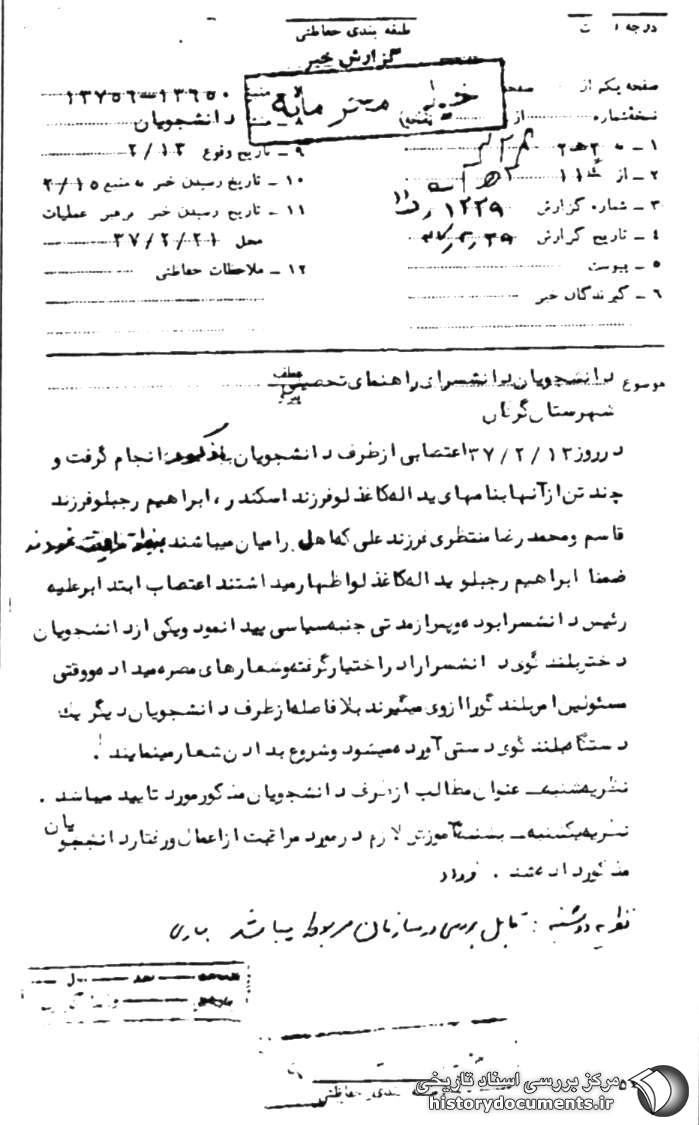 درجه
طبقه بندی حفاظتی
گزارش خبر
خیلی محرمانه
صفحه یکم از صفحه
نسخه شماره از نسخه
۱ - به
۲ - از
۳ - شماره گزارش ۱۲۲۹
۴ - تاریخ گزارش
۵ - پیوست
۶ - گیرندگان خبر
۷ - ۱۳۶۵۰ - ۱۳۷۵۶
۸ - دانشجویان
۹ - تاریخ وقوع ۲/۱۳
۱۰ - تاریخ رسیدن خبر به منبع ۲/۱۵
۱۱ - تاریخ رسیدن خبر برهبر عملیات
محل ۳۷/۲/۲۱
۱۲ - ملاحظات حفاظتی
موضوع دانشجویان دانشسرای راهنمای تحصیلی
عطف
پیرو
شهرستان گرگان
در روز ۳۷/۲/۱۳ اعتصابی از طرف دانشجویان مذکور انجام گرفت و
چند تن از آنها بنامهای یداله کاغذلو فرزند اسکندر، ابراهیم رجبلو فرزند
قاسم و محمد رضا منتظری فرزند علی که اهل رامیان میباشند
ضمنا ابراهیم رجبلو و یداله کاغذلو اظهار میداشتند اعتصاب ابتدا بر علیه
رئیس دانشسرا بوده و پس از مدتی جنبه سیاسی پیدا نمود و یکی از دانشجویان
دختر بلندگوی دانشسرا را در اختیار گرفته و شعارهای مضره میداده و وقتی
مسئولین امر بلندگو را از وی میگیرند بلافاصله از طرف دانشجویان دیگر یک
دستگاه بلندگوی دستی آورده میشود و شروع بدادن شعار مینمایند .
نظریه شنبه - عنوان مطالب از طرف دانشجویان مذکور مورد تایید میباشد .
نظریه یکشنبه - بشنبه آموزش لازم در مورد مراقبت از اعمال و رفتار دانشجویان
مذکور داده شد .
نظریه دوشنبه : قابل بررسی در سازمان مربوطه میباشد
طبقه بندی حفاظتی
مرکز بررسی اسناد تاریخی
historydocuments.ir